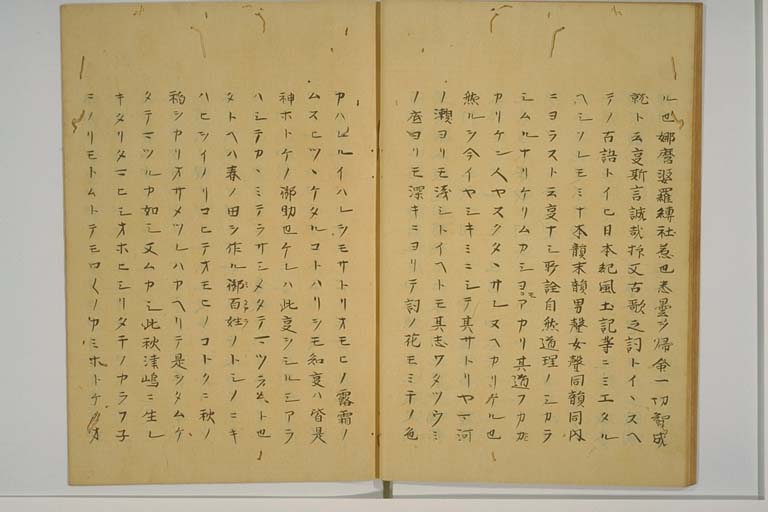 ル也娜麿婆羅縛社惹也悉曇ヲ歸命一切智成
就ト云㕝斯言誠哉抑又古歌之詞トイヽスヘ
テノ百語トイヒ日本紀風土記等ニミエタル
ヘシソレモミナ本韻末韻男聲女聲同韻同内
ニヨラスト云㕝ナシ所詮自然道理ノシカラ
シムルナリケリムカシヨアカリ其道フカカ
カリケン人ヤスクタヽサレヌヘカリケル也
然ルシ今イヤシキミニシテ其サトリヤマ河
ノ瀬ヨリモ浅シトイヘトモ其志ワタツウミ
ノ底ヨリモ深キニヨリテ詞ノ花モミチノ色
カハルイハレシモサトリオモヒノ露霜ノ
ムスヒツヽケタルコトハリシモ知㕝ハ皆是
神ホトケノ御助也ケレハ此㕝シシルシアラ
ハシテカヽミテラサシメタテマツラムト也
タトヘハ春ノ田シ作ル御百姓ノトシノニキ
ハヒシイノリコヒテオモヒノコトクニ秋ノ
稲シカリオサメツレハカヘリテ是シタムケ
タテマツルカ如シ又ムカシ此秋津嶋ニ生レ
キタリタマヒシオホヒシリタチノカラフ子
ニノリモトムトテモロ〱ノカミホトケタ